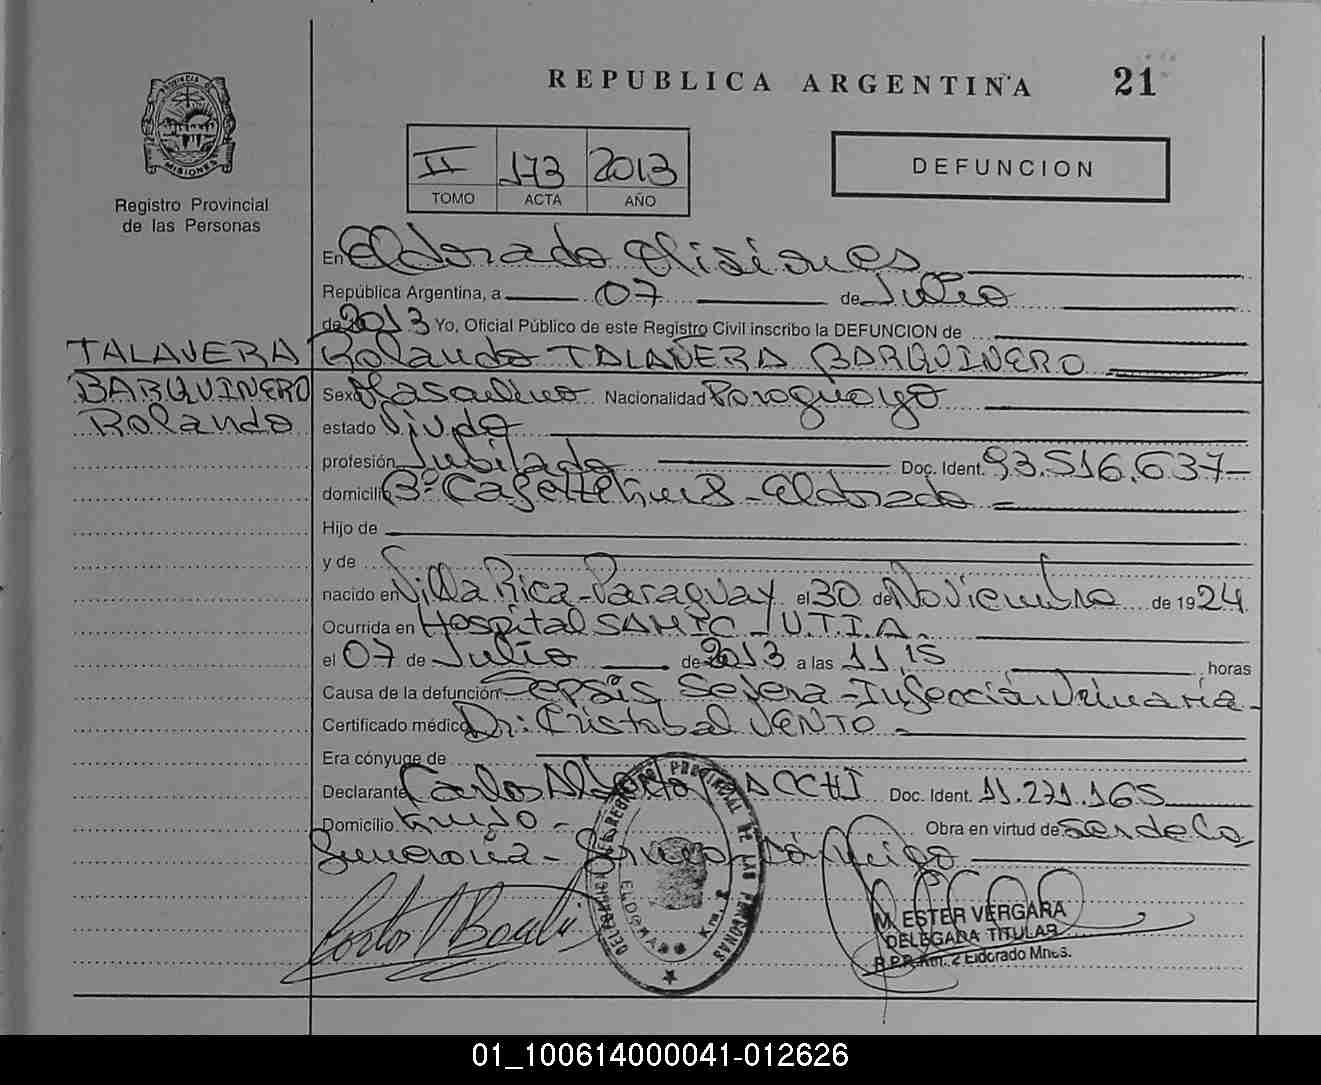 REPUBLICA ARGENTINA 21
PROVINCIA DE MISIONES
Registro Provincial
de las Personas
II 173 2013
TOMO ACTA AÑO
DEFUNCION
En Eldorado Misiones
República Argentina, a 07 de Julio
de 2013 Yo, Oficial Público de este Registro Civil inscribo la DEFUNCION de
TALAVERA
BARQUINERO
Rolando
Rolando TALAVERA BARQUINERO
Sexo Masculino Nacionalidad Paraguaya
estado Viudo
profesión Jubilado Doc. Ident. 93.516.637-
domicilio Bº Km 8 - Eldorado
Hijo de
y de
nacido en Villa Rica - Paraguay el 30 de Noviembre de 1924
Ocurrida en Hospital SAMIC - U.T.I.A.
el 07 de Julio de 2013 a las 11,15 horas
Causa de la defunción Sepsis Severa - Infección Urinaria -
Certificado médico Dr: Cristobal VENTO -
Era cónyuge de
Declarante Carlos Alberto Doc. Ident. 11.271.165
Domicilio Km 10 - Obra en virtud de ser de Co.
Funeraria - Firma conmigo
DELEGACION REGISTRO PROVINCIAL DE LAS PERSONAS
ELDORADO Km. 2
M. ESTER VERGARA
DELEGADA TITULAR
R.P.P. Km. 2 Eldorado Mnes.
01_100614000041-012626